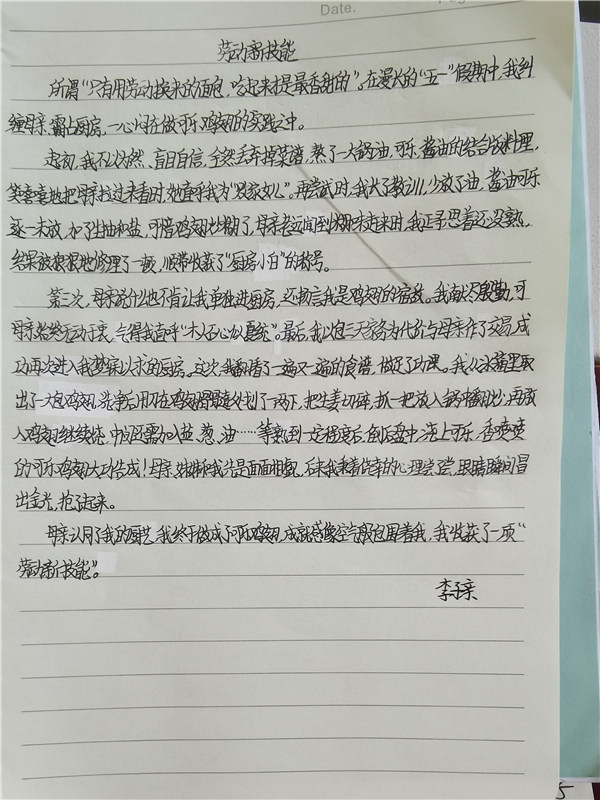 Date.
劳动新技能
所谓“只有用劳动换来的面包，吃起来才是最香甜的”。在漫长的“五一”假期中，我纠
缠母亲，霸占厨房，一心闷在做可乐鸡翅的实践之中。
起初，我不以为然、盲目自信，全然丢弃掉菜谱，熬了一大锅油，可乐，酱油的结合版料理，
笑意盈盈地把母亲拉过来看时，她直呼我为“败家女儿”。再尝试时，我长了教训，少放了油，酱油可乐
逐一未放，加了生抽和盐，可惜鸡翅烧糊了，母亲老远闻到糊味走来时，我正寻思着还没熟，
结果被狠狠地修理了一顿，顺带收获了“厨房小白”的称号。
第三次，母亲说什么也不肯让我单独进厨房，还扬言我是鸡翅的宿敌。我献尽殷勤，可
母亲始终无动于衷，气得我直呼“木人石心似夏统”。最后，我以包三天家务为代价与母亲作了交易，成
功再次进入我梦寐以求的厨房。这次，我翻看了一遍又一遍的食谱，做足了功课。我从冰箱里取
出了一大包鸡翅，洗净后用刀在鸡翅骨缝处划了两下，把生姜切碎，抓一把放入锅中翻炒，再放
入鸡翅继续烧，中间还需加入盐、葱、油……等熟到一定程度后，倒后盘中，浇上可乐，香喷喷
的可乐鸡翅大功告成！母亲、姐姐和我先是面面相觑，后来我乘着侥幸的心理尝尝，眼睛瞬间冒
出金光，抢了起来。
母亲认同了我的厨艺，我终于做成了可乐鸡翅，成就感像空气般包围着我，我收获了一项“
劳动新技能”。
李子亲
5